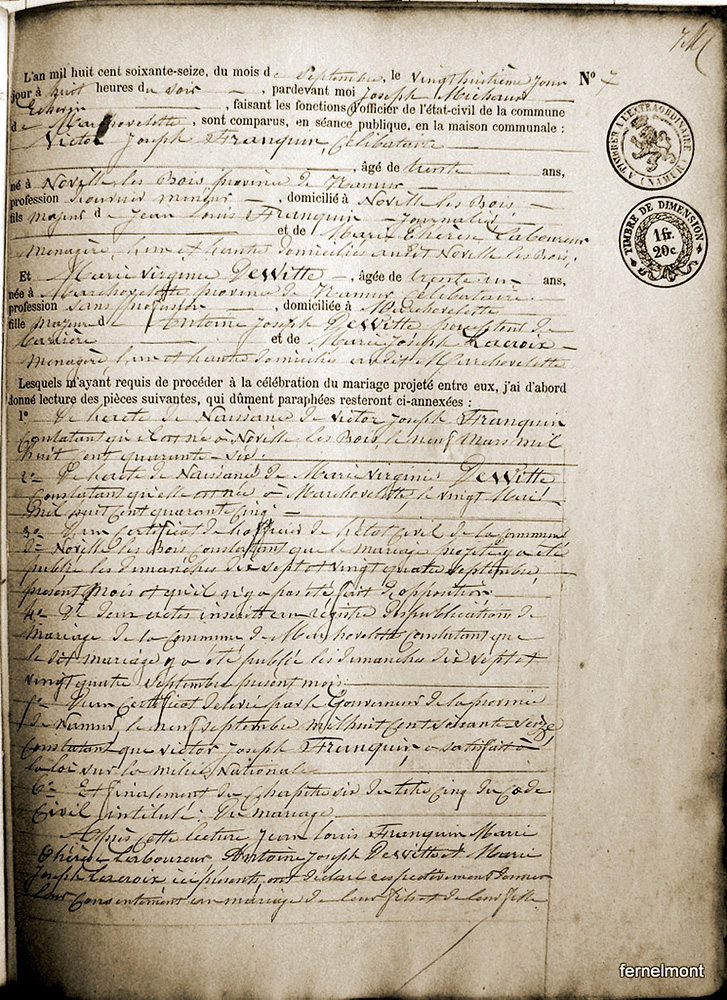 L'an mil huit cent soixante-seize, du mois de Septembre, le vingt huitième jour
jour à huit heures du soir, pardevant moi Joseph Michaux
Echevin, faisant les fonctions d'officier de l'état-civil de la commune
de Marchovelette, sont comparus, en séance publique, en la maison communale :
Victor Joseph Franquin Célibataire
, âgé de trente ans,
né à Noville les Bois province de Namur
profession ouvrier mineur, domicilié à Noville les Bois
fils majeur de Jean Louis Franquin Journalier
et de Marie Thérèse Laboureur
Menagère, l'un et l'autre domiciliés audit Noville les Bois,
Et Marie Virginie DeWitte, âgée de trente un ans,
née à Marchovelette province de Namur Célibataire
profession sans profession, domiciliée à Marchovelette
fille majeure de Antoine Joseph DeWitte
Carrière et de Marie Joseph Lacroix
Menagère, l'un et l'autre domiciliés audit Marchovelette
Lesquels m'ayant requis de procéder à la célébration du mariage projeté entre eux, j'ai d'abord
donné lecture des pièces suivantes, qui dûment paraphées resteront ci-annexées :
1° De l'acte de Naissance de Victor Joseph Franquin
Constatant qu'il est né à Noville les Bois, le neuf Mars mil
huit Cent quarante-six.
2° De l'acte de Naissance de Marie Virginie DeWitte
Constatant qu'elle est née à Marchovelette, le vingt
mil huit Cent quarante Cinq
3° D'un Certificat de l'officier de l'état Civil de la Commune
de Noville les Bois Constatant que le Mariage projeté y a été
publié les dimanches dix sept et vingt quatre Septembre
présent Mois et qu'il n'y a pas été fait d'opposition
4° De deux actes inscrits au registre des publications de
Mariage de la Commune de Marchovelette Constatant que
le dit Mariage y a été publié les dimanches dix sept et
vingt quatre Septembre présent mois
5° D'un Certificat délivré par le Gouverneur de la province
de Namur, le neuf Septembre mil huit Cent soixante seize
Constatant que Victor Joseph Franquin, a satisfait à
la loi sur la Milice Nationale
6° Et finalement du Chapitre six du titre Cinq du Code
Civil intitulé : Du mariage
Après cette lecture Jean Louis Franquin Marie
Thérèse Laboureur Antoine Joseph DeWitte et Marie
Joseph Lacroix ici présents, ont déclaré respectivement donner
leur Consentement au mariage de leur fils et de leur fille
N° 7
TIMBRE A L'EXTRAORDINAIRE
(NAMUR)
TIMBRE DE DIMENSION
1 fr
20 c.
fernelmont